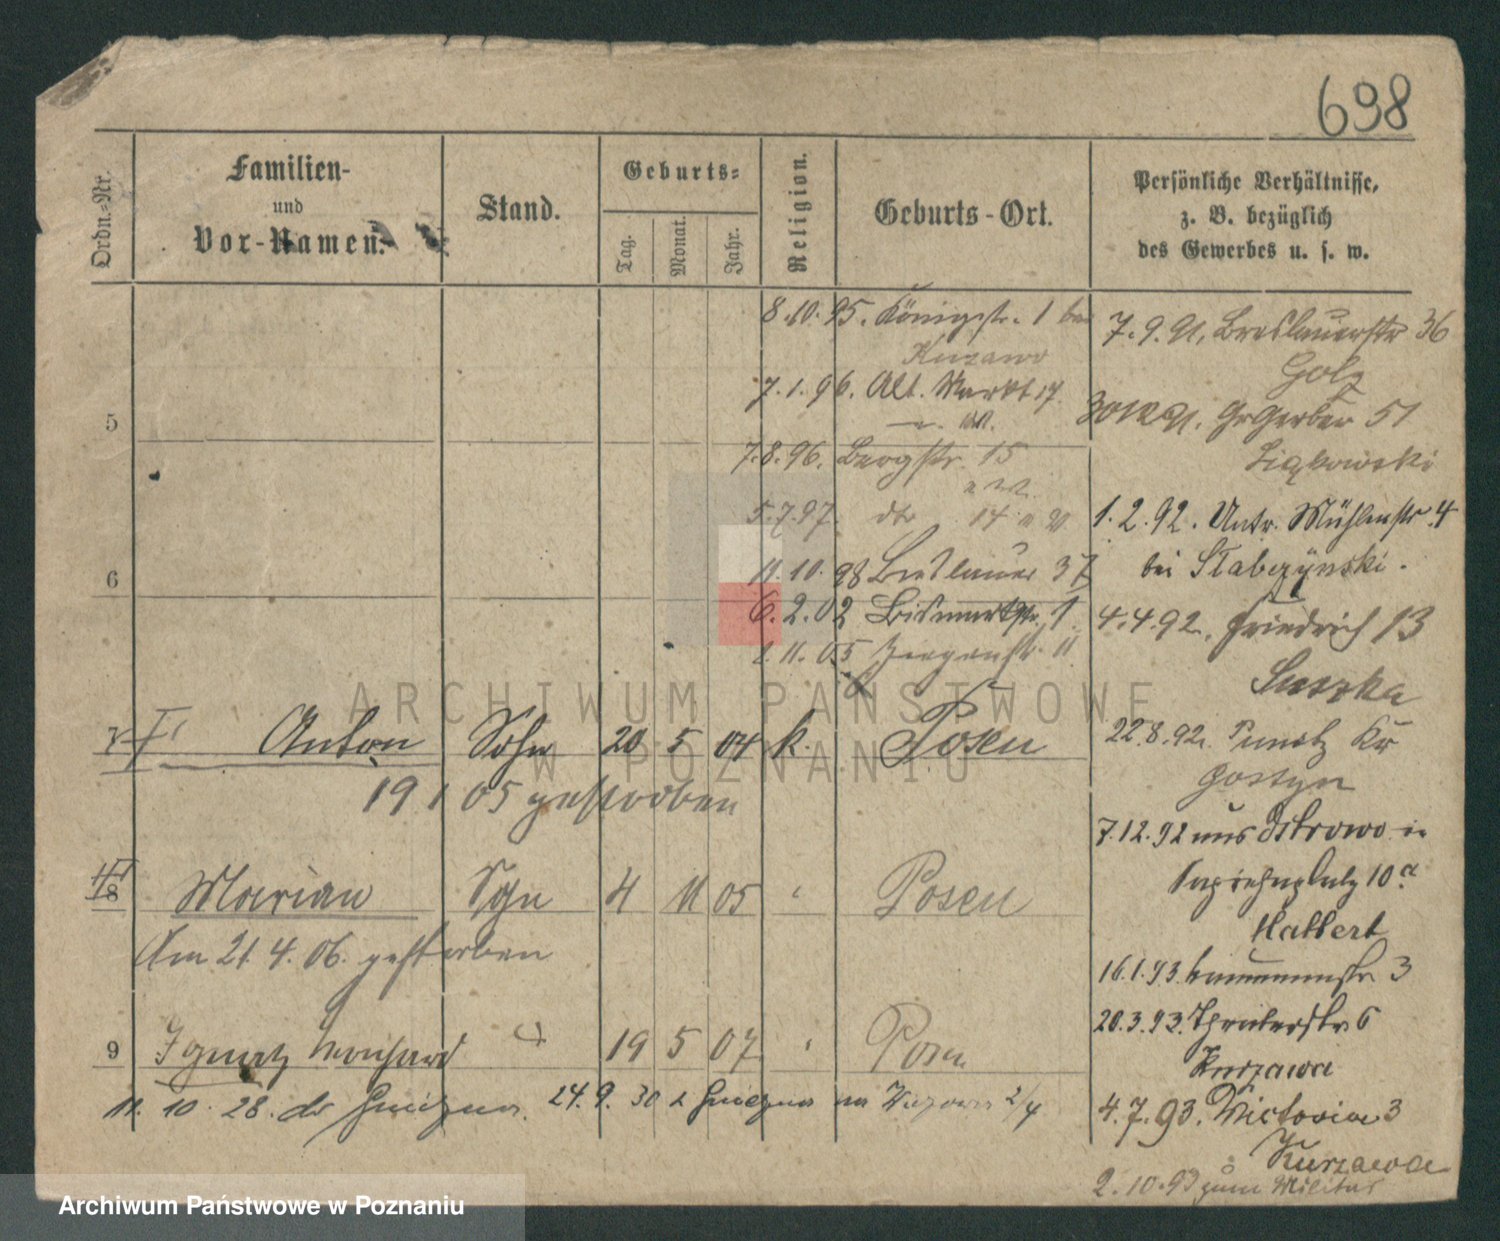 698
Ordn.-Nr.
Familien-
und
Vor-Namen.
Stand.
Geburts-
Tag.
Monat.
Jahr.
Religion.
Geburts-Ort.
Persönliche Verhältnisse,
z. B. bezüglich
des Gewerbes u. s. w.
8.10.95. Königstr. 1 bei
Kurzawa
7.1.96. Alt. Markt 17.
7.8.96. Bergstr. 15
5.7.97. dto 14
11.10.98 Breslauer 37
6.2.02 Bismarkstr. 1
1.11.05 Ziegenstr. 11
5
6
7 Anton Sohn 20 5 04 k. Posen
19 1 05 gestorben
8 Marian Sohn 4 11 05 Posen
Am 21. 4. 06. gestorben
9 Ignatz Leonhard 19 5 07 Posen
11. 10. 28. do Gniezna. 24. 9. 30 z Gniezna na
7.9.91. Breslauerstr 36
Golz
91. Gr Gerber 51
Liąkowski
1.2.92. Untr. Mühlenstr. 4
bei Stabczynski.
4.4.92. Friedrich 13
22.8.92. Punitz Kr
Gostyn
7.12.92 aus Ostrowo in
Sapiehaplatz 10a
Hallert
16.1.93. 3
20.3.93. Theaterstr 6
Kurzawa
4.7.93. Victoria 3
Kurzawa
2.10.93 zum Militär
ARCHIWUM PAŃSTWOWE
W POZNANIU
Archiwum Państwowe w Poznaniu